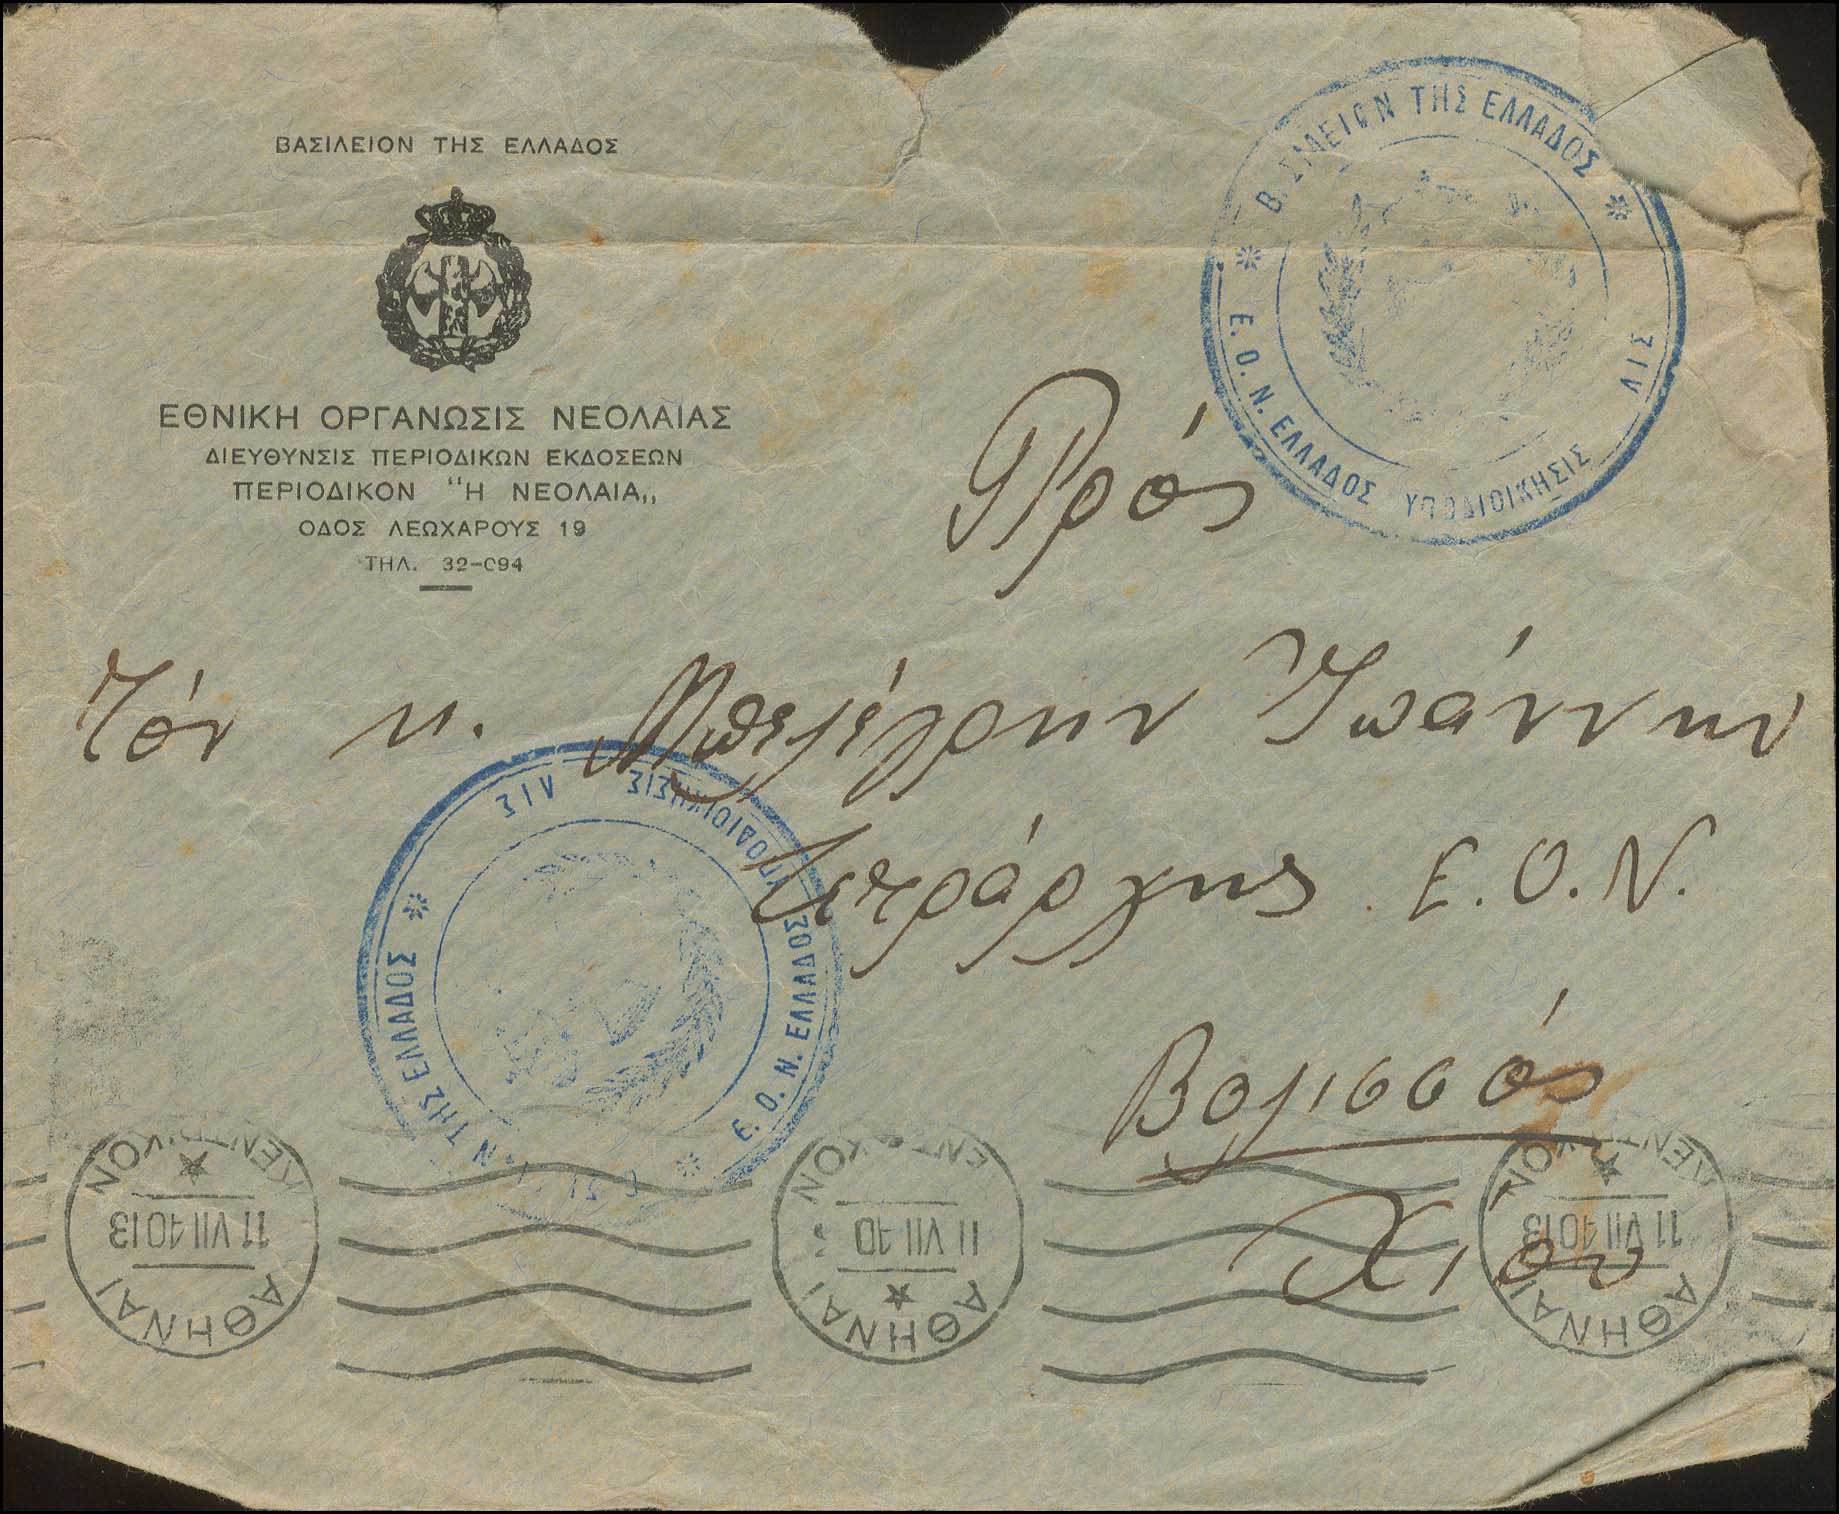 ΒΑΣΙΛΕΙΟΝ ΤΗΣ ΕΛΛΑΔΟΣ
ΕΘΝΙΚΗ ΟΡΓΑΝΩΣΙΣ ΝΕΟΛΑΙΑΣ
ΔΙΕΥΘΥΝΣΙΣ ΠΕΡΙΟΔΙΚΩΝ ΕΚΔΟΣΕΩΝ
ΠΕΡΙΟΔΙΚΟΝ "Η ΝΕΟΛΑΙΑ„
ΟΔΟΣ ΛΕΩΧΑΡΟΥΣ 19
ΤΗΛ. 32-094
Β. ΣΙΛΕΙΟΝ ΤΗΣ ΕΛΛΑΔΟΣ
Ε. Ο. Ν. ΕΛΛΑΔΟΣ ΥΠΟΔΙΟΙΚΗΣΙΣ ΣΙV
Πρός
Τόν κ. Μπελέγρην Ἰωάννην
Τετράρχης Ε.Ο.Ν.
Βολισσός
Χίον
Ν ΤΗΣ ΕΛΛΑΔΟΣ
Ε. Ο. Ν. ΕΛΛΑΔΟΣ ΥΠΟΔΙΟΙΚΗΣΙΣ ΣΙV
ΑΘΗΝΑΙ
11 VII 40 13
ΚΕΝΤΡΙΚΟΝ
ΑΘΗΝΑΙ
11 VII 40
ΚΕΝΤΡΙΚΟΝ
ΑΘΗΝΑΙ
11 VII 40 13
ΚΕΝΤΡΙΚΟΝ